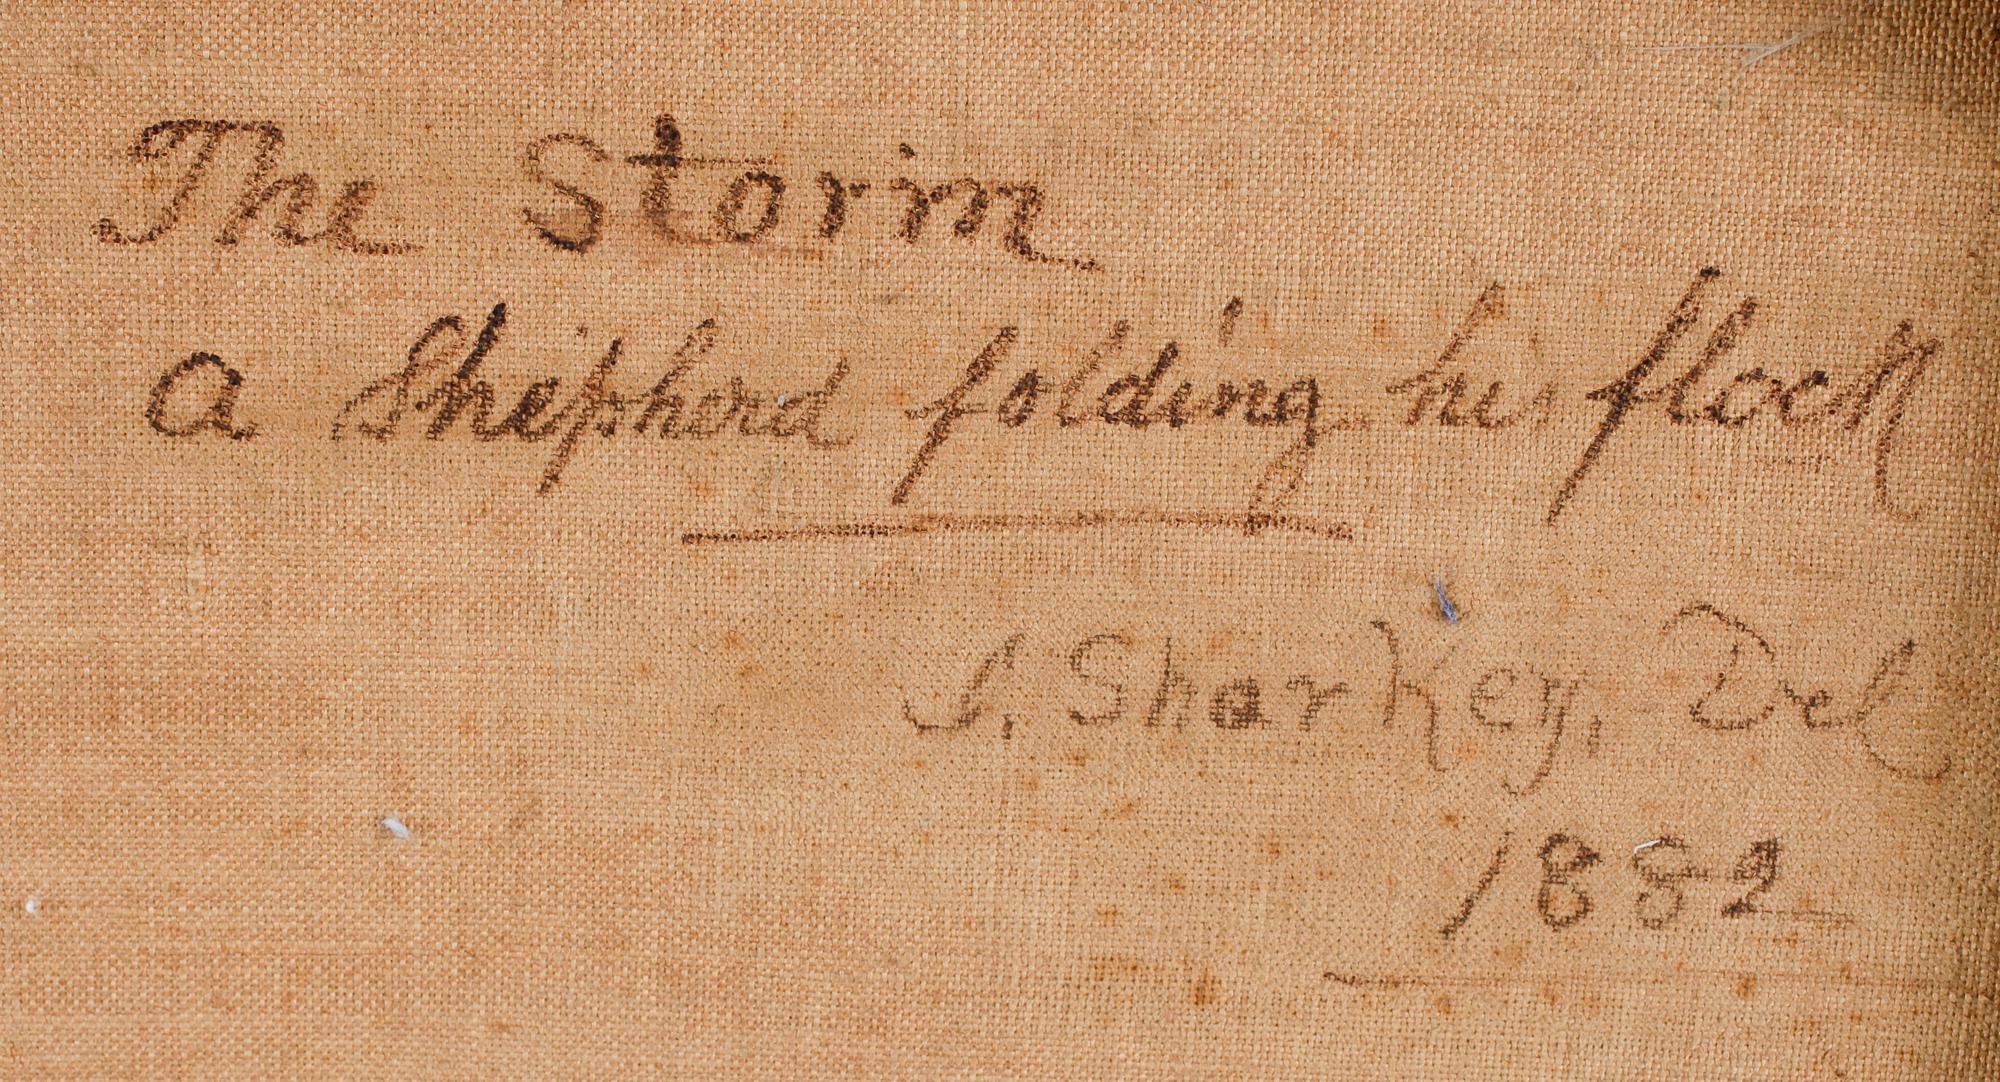 The Storm
a Shepherd folding his flock
J. Sharkey, Del
1882